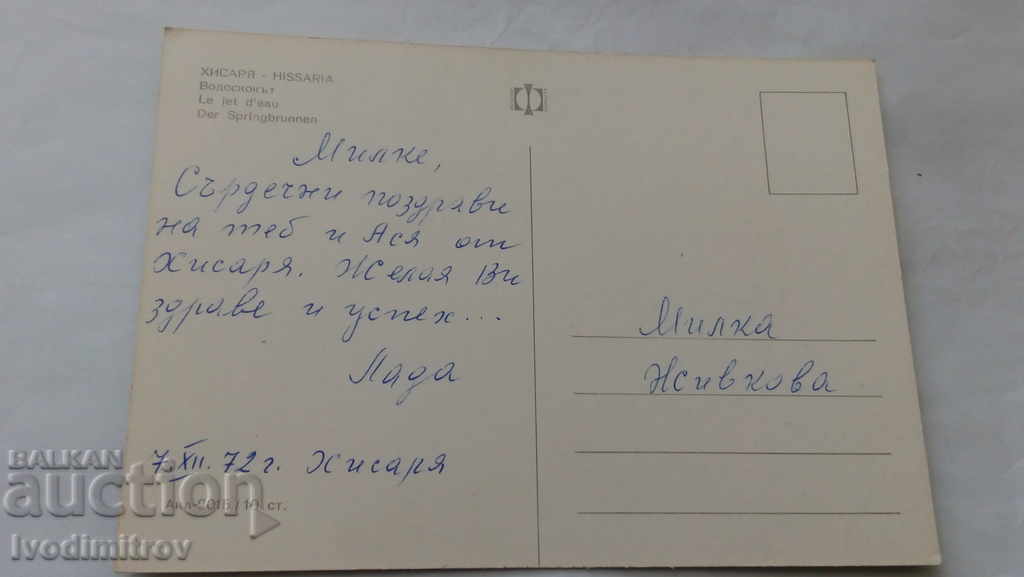 ХИСАРЯ - HISSARIA
Водоскокът
Le jet d'eau
Der Springbrunnen
Милке,
Сърдечни поздрави
на теб и Ася от
Хисаря. Желая Ви
здраве и успех...
Лада
7.XII.72г. Хисаря
Акл-2015/10 ст.
Милка
Живкова
BALKAN
auction
Ivodimitrov